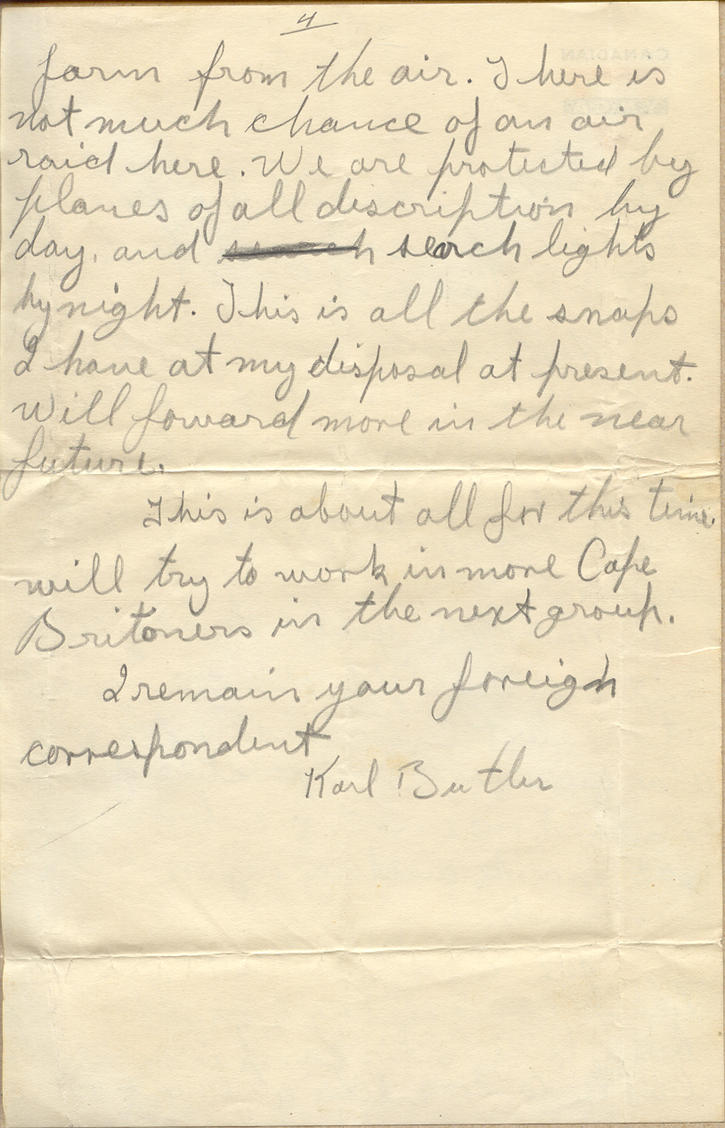 4
farm from the air. There is
not much chance of an air
raid here. We are protected by
planes of all description by
day, and search search lights
by night. This is all the snaps
I have at my disposal at present.
Will foward more in the near
future.
This is about all for this time.
will try to work in more Cape
Britoners in the next group.
I remain your foreign
correspondent
Karl Butler
CANADIAN